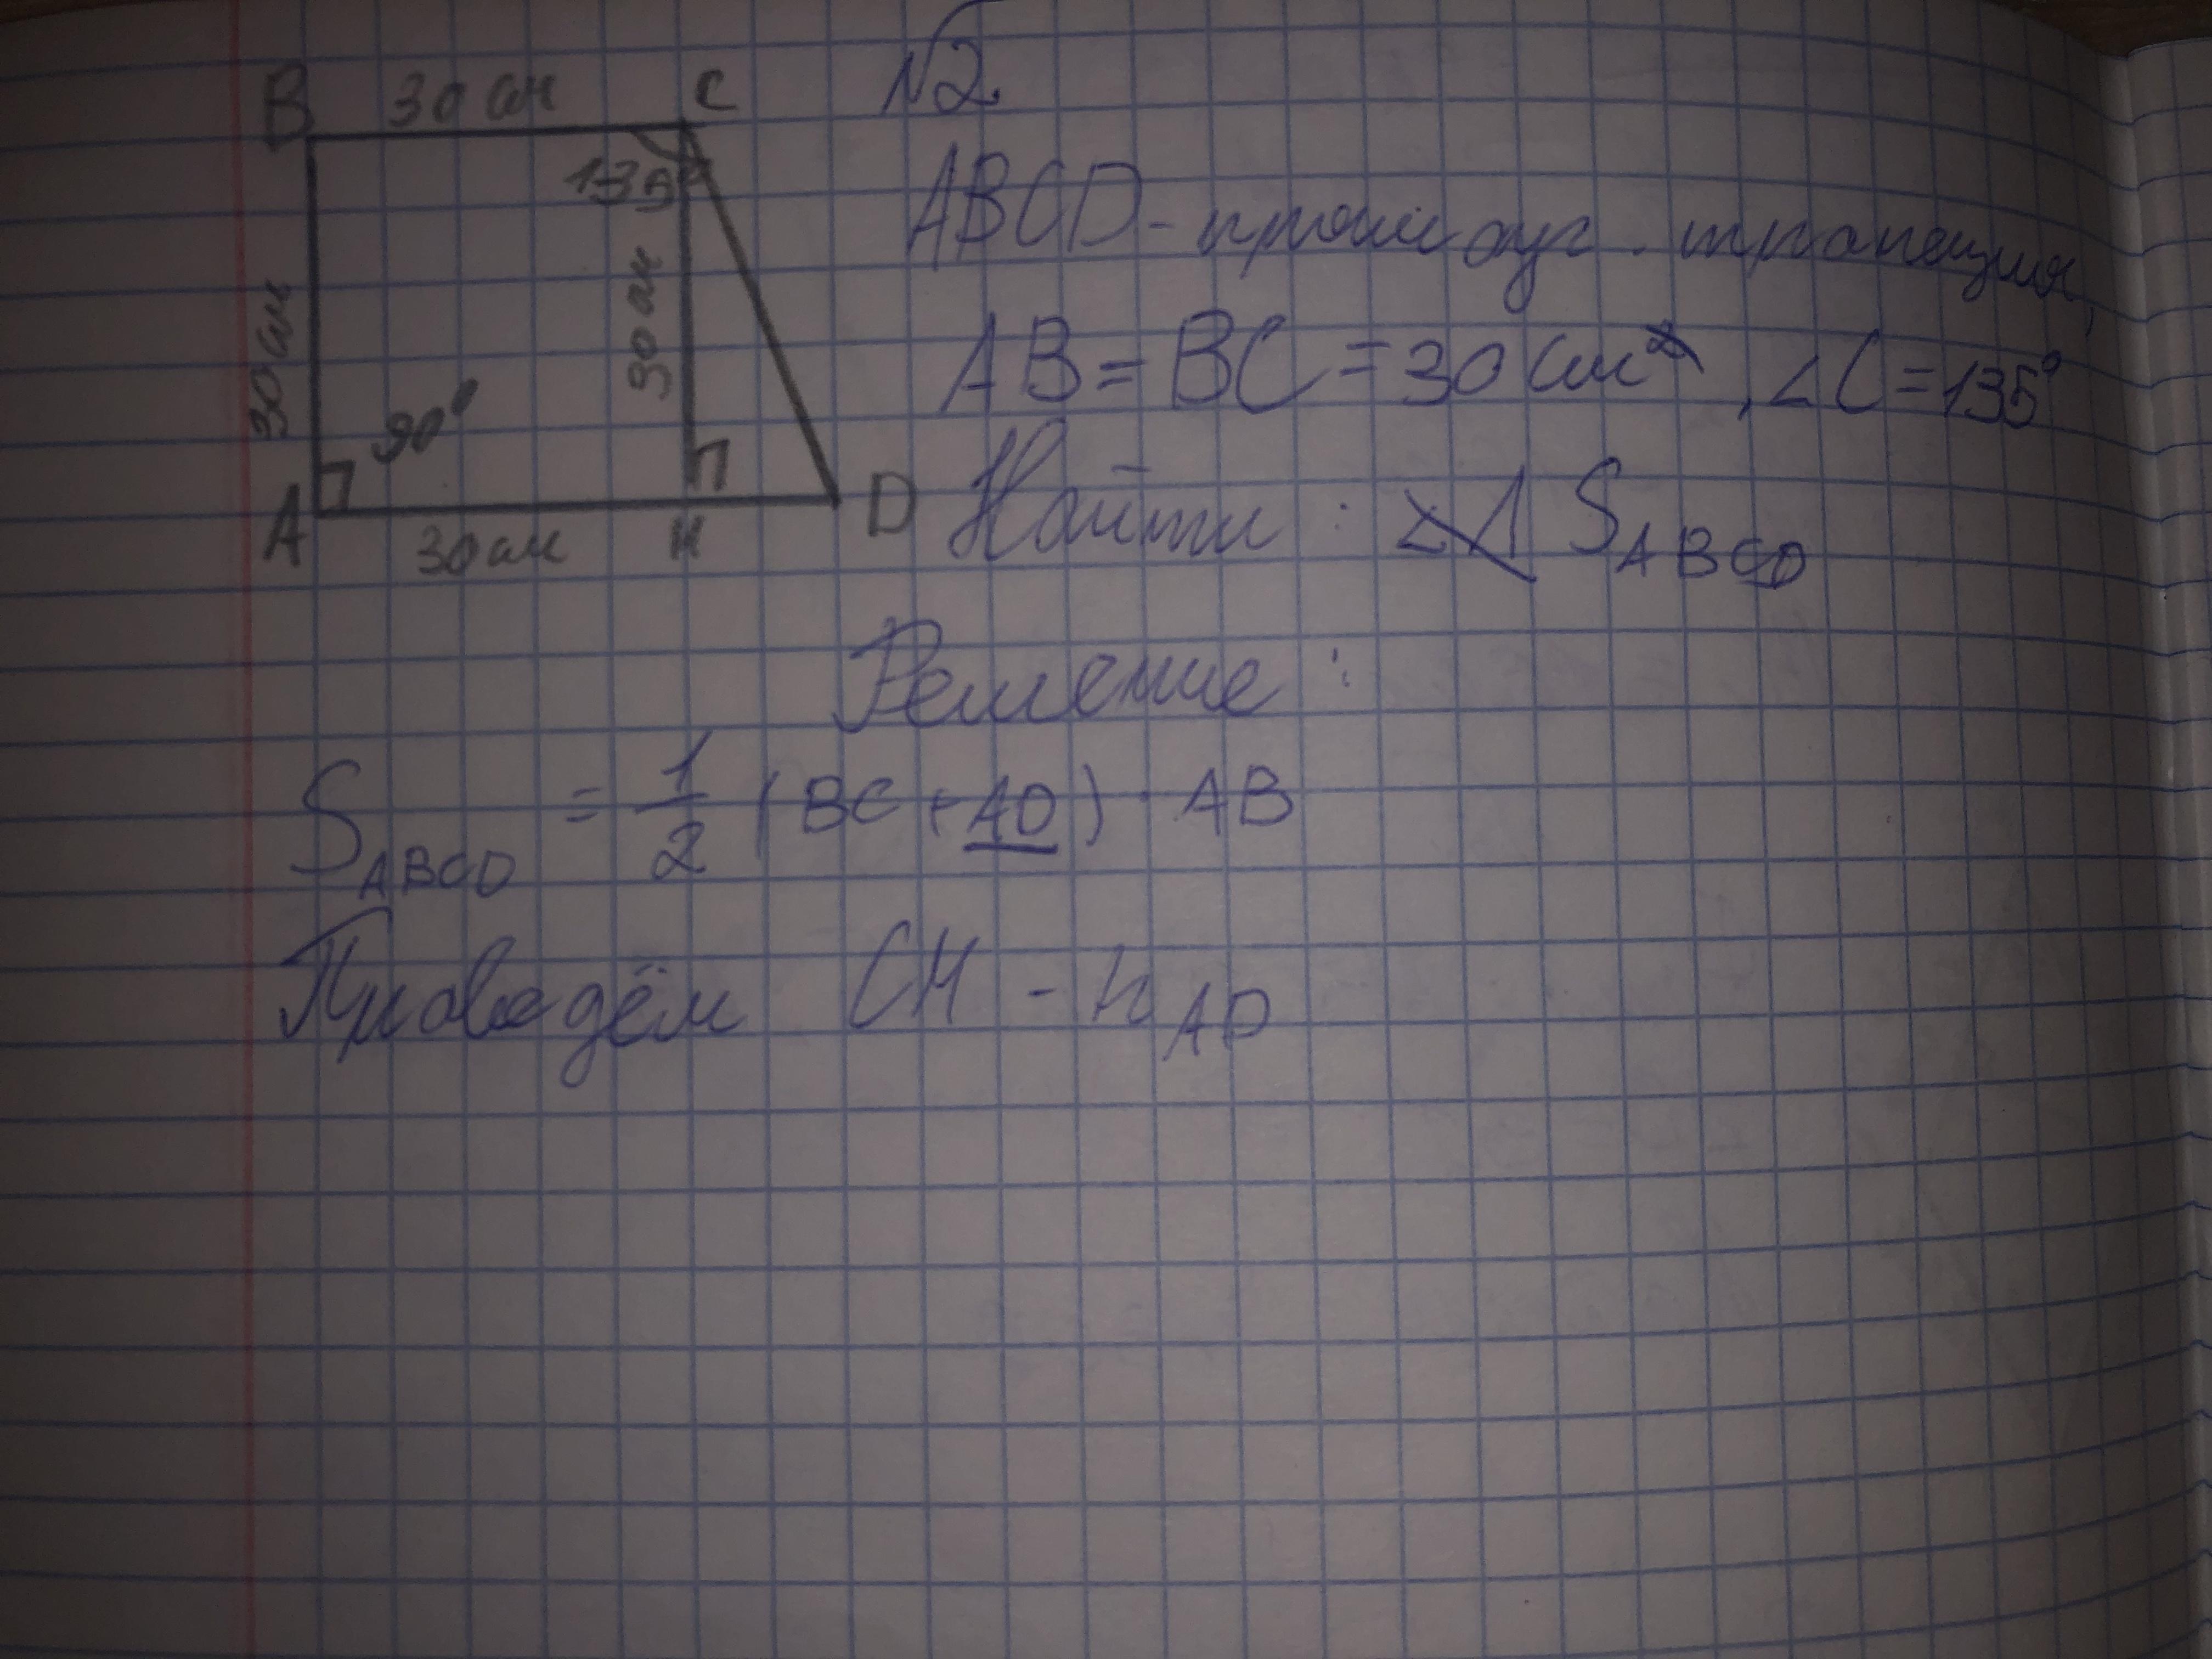 B 30 см C
135
30 см
30 см
90°
A 30 см H D
№2
ABCD - прямоуг. трапеция,
AB = BC = 30 см², ∠C = 135°
Найти: ∠A S ABCD
Решение:
S ABCD = 1/2 (BC + AD) · AB
Проведём CH - h AD